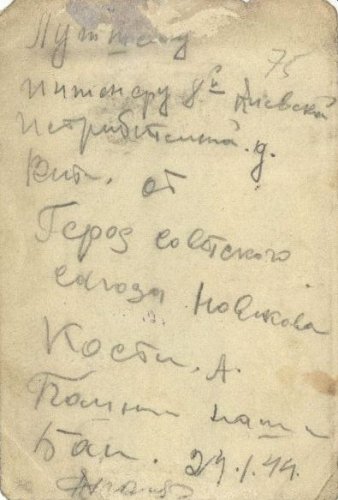 Лутшему
75
питонеру 8й Киевской
истрибтемной. д.
Вит. от
Герод советского
союза Новикова
Кости. А.
Помни наши
Баи. 24.1.44.